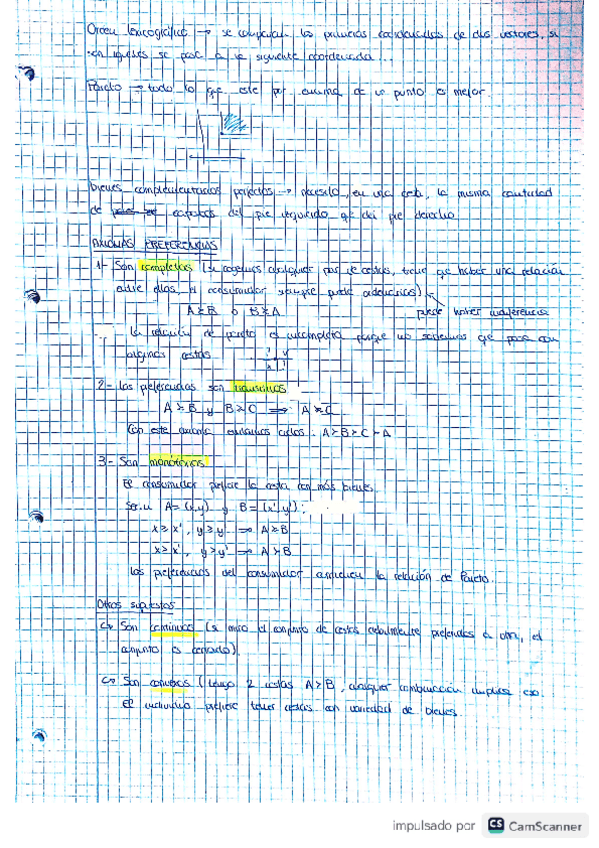 Orden lexicográfico → se comparan las primeras coordenadas de dos vectores, si
son iguales se pasa a la siguiente coordenada...
Pareto → todo lo que esté por encima de un punto es mejor.
bienes complementarios perfectos → necesito, en una cesta, la misma cantidad
de zapatos del pie izquierdo que del pie derecho
AXIOMAS PREFERENCIAS
1- Son completas (si cogemos cualquier par de cestas, tiene que haber una relación
entre ellas, el consumidor siempre puede ordenarlas)
A ≥ B ó B ≥ A
puede haber indiferencia
La relación de pareto es incompleta porque no sabemos qué pasa con
algunas cestas
2- Las preferencias son transitivas
A ≥ B y B ≥ C ⟹ A ≥ C
Con este axioma evitamos ciclos: A > B > C > A
3- Son monótonas
El consumidor prefiere la cesta con más bienes.
Sean A = (x,y) y B = (x',y'):
x ≥ x', y ≥ y' ⟹ A ≥ B
x > x', y > y' ⟹ A > B
Las preferencias del consumidor extienden la relación de Pareto.
Otros supuestos
↳ Son continuas (si miro el conjunto de cestas débilmente preferidas a otra, el
conjunto es cerrado)
↳ Son convexas (tengo 2 cestas A > B, cualquier combinación cumple eso.
El individuo prefiere tener cestas con variedad de bienes.
impulsado por CS CamScanner